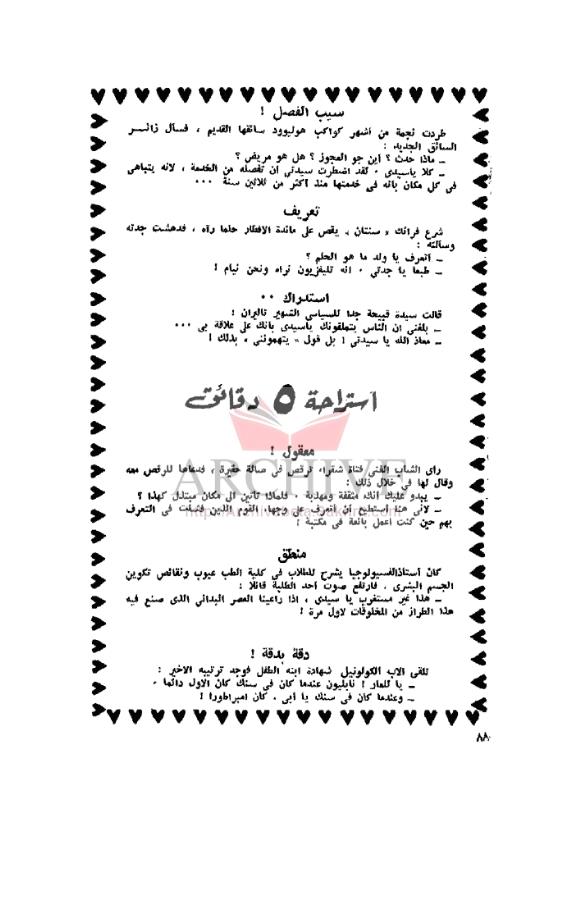 سبب الفصل !
طردت نجمة من أشهر كواكب هوليوود سائقها القديم ، فسأل زائسر
السائق الجديد :
ـ ماذا حدث ؟ أين جو العجوز ؟ هل هو مريض ؟
ـ كلا ياسيدى ، لقد اضطرت سيدتى أن تفصله من الخدمة ، لانه يتباهى
فى كل مكان بانه فى خدمتها منذ أكثر من ثلاثين سنة ...
تعريف
شرع فرانك « سنتان » يقص على مائدة الافطار حلما رآه ، فدهشت جدته
وسالته :
ـ أتعرف يا ولد ما هو الحلم ؟
ـ طبعا يا جدتى ، انه تليفزيون نراه ونحن نيام !
استدراك ..
قالت سيدة قبيحة جدا للسياسى الشهير تاليران !
ـ بلغنى ان الناس يتملقونك ياسيدى بانك على علاقة بى ...
ـ معاذ الله يا سيدتى ! بل قولى « يتهموننى » بذلك !
استراحة ٥ دقائق
معقول !
رأى الشاب الغنى فتاة شقراء ترقص فى صالة حقيرة ، فدعاها للرقص معه
وقال لها فى خلال ذلك :
ـ يبدو عليك انك مثقفة ومهذبة ، فلماذا تأتين الى مكان مبتذل كهذا ؟
ـ لأنى هنا أستطيع أن أتعرف على وجهاء القوم الذين فشلت فى التعرف
بهم حين كنت أعمل بائعة فى مكتبة !
منطق
كان أستاذالفسيولوجيا يشرح للطلاب فى كلية الطب عيوب ونقائص تكوين
الجسم البشرى ، فارتفع صوت أحد الطلبة قائلا :
ـ هذا غير مستغرب يا سيدى ، اذا راعينا العصر البدائى الذى صنع فيه
هذا الطراز من المخلوقات لاول مرة !
دقة بدقة !
تلقى الاب الكولونيل شهادة ابنه الطفل فوجد ترتيبه الاخير :
ـ يا للعار ! نابليون عندما كان فى سنك كان الاول دائما ،
ـ وعندما كان فى سنك يا أبى ، كان امبراطورا !
٨٨
ARCHIVE